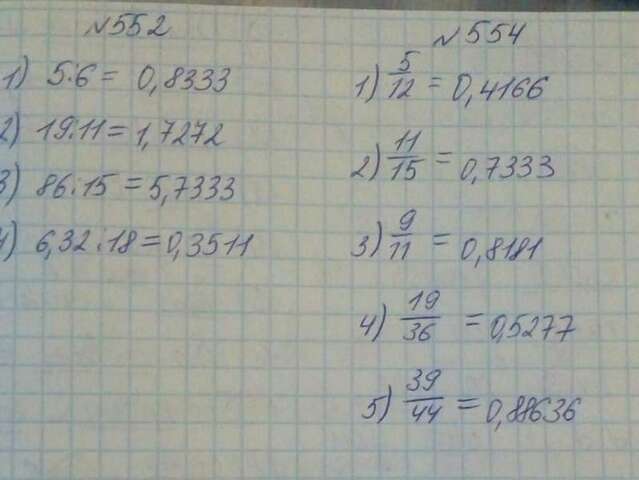 №552
1) 5:6 = 0,8333
2) 19:11 = 1,7272
3) 86:15 = 5,7333
4) 6,32:18 = 0,3511
№554
1) 5/12 = 0,4166
2) 11/15 = 0,7333
3) 9/11 = 0,8181
4) 19/36 = 0,5277
5) 39/44 = 0,88636